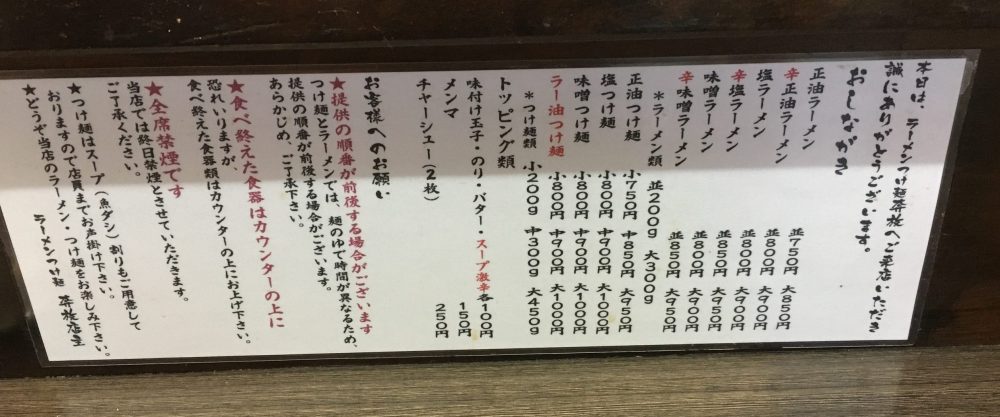 本日は、ラーメンつけ麺 茶検へご来店いただき
誠にありがとうございます。
おしながき
正油ラーメン 並750円 大850円
辛正油ラーメン 並850円 大950円
塩ラーメン 並800円 大900円
辛塩ラーメン 並850円 大950円
味噌ラーメン 並800円 大900円
辛味噌ラーメン 並850円 大950円
*ラーメン類 並200g 大300g
正油つけ麺 小750円 中850円 大950円
塩つけ麺 小800円 中900円 大1000円
味噌つけ麺 小800円 中900円 大1000円
ラー油つけ麺 小800円 中900円 大1000円
*つけ麺類 小200g 中300g 大450g
トッピング類
味付け玉子・のり・バター・スープ激辛 各100円
メンマ 150円
チャーシュー(2枚) 250円
お客様へのお願い
★提供の順番が前後する場合がございます
つけ麺とラーメンでは、麺のゆで時間が異なるため、
提供の順番が前後する場合がございます。
あらかじめ、ご了承下さい。
★食べ終えた食器はカウンターの上に
恐れいりますが、
食べ終えた食器類はカウンターの上にお上げ下さい。
★全席禁煙です
当店では終日禁煙とさせていただきます。
ご了承ください。
★つけ麺はスープ(魚ダシ)割りもご用意して
おりますので店員までお声掛け下さい。
★どうぞ当店のラーメン・つけ麺をお楽しみ下さい。
ラーメンつけ麺 店主